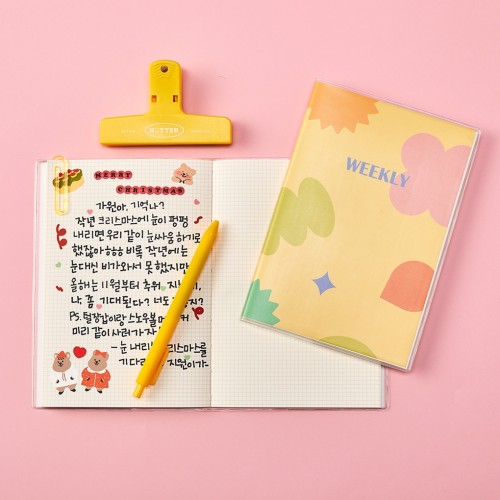 MERRY
CHRISTMAS
가원아, 기억나?
작년 크리스마스에 눈이 펑펑
내리면 우리 같이 눈싸움 하기로
했잖아ㅎㅎㅎ 비록 작년에는
눈대신 비가와서 못 했지만
올해는 11월부터 추워
나, 좀 기대된다? 너도
PS. 털장갑이랑 스노우볼
미리 같이 사러가자
- 눈 내리
기다리 지원이가-
WEEKLY